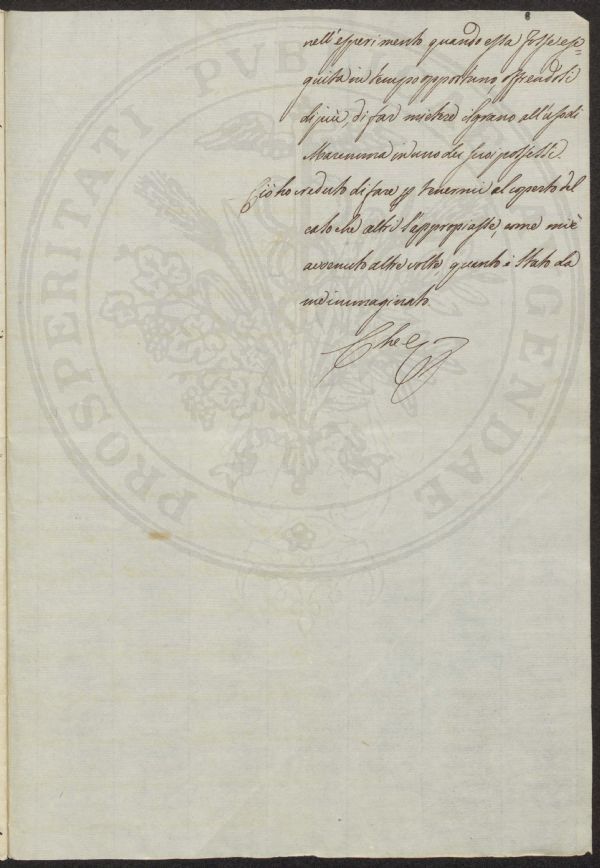 8
nell'esperimento quando essa fosse es=
guita in tempo opportuno, offrendosi
di più, di far mietere il grano all'uso di
Maremma in uno dei suoi possessi.
Ciò ho creduto di fare p tenermi al coperto del
caso che altri s'appropiasse, come mi è
avvenuto altre volte quanto è stato da
me immaginato.
PROSPERITATI PUBLICAE AUGENDAE